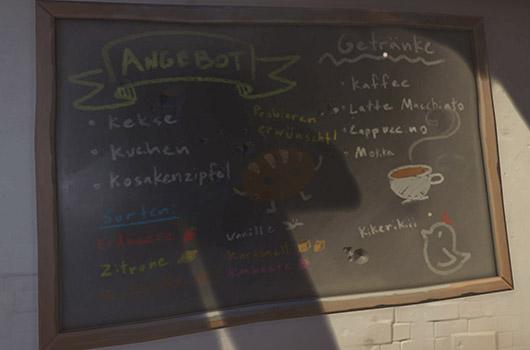 ANGEBOT
• Kekse
• Kuchen
• Kosakenzipfel
Probieren
erwünscht!
Getränke
• Kaffee
• Latte Macchiato
• Cappuccino
• Mokka
Sorten:
Erdbeere
Zitrone
Vanille
Karamell
Himbeere
Kikerikii